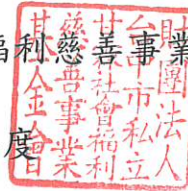 福利慈善事業
度
財團法人
台中市私立
甘霖社會福利
慈善事業
基金會